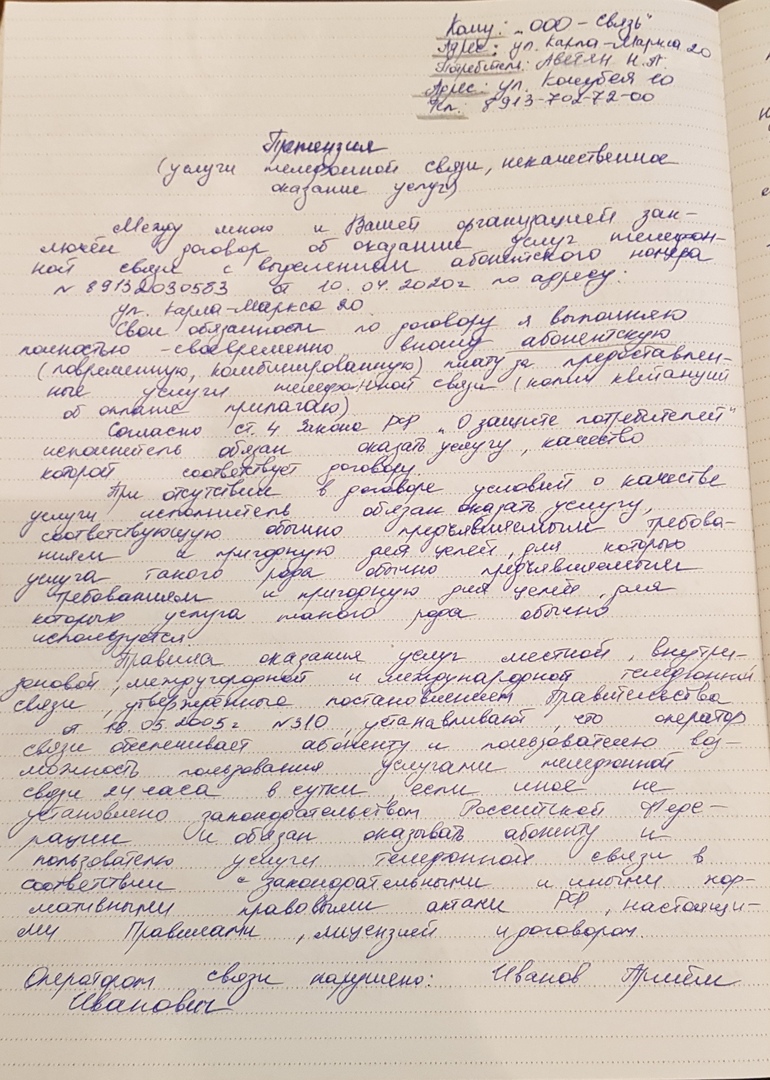 Кому: „ООО - Связь"
Адрес: ул. Карла-Маркса 20
Потребитель: Аветян Н.А
Адрес: ул. Кочубея 60
Тел.: 8913-702-72-00
Претензия
(услуги телефонной связи, некачественное
оказание услуг)
Между мною и Вашей организацией зак-
лючён договор об оказание услуг телефон-
ной связи с выделением абонентского номера
№ 89132030583 от 10.04.2020г по адресу:
ул. Карла-Маркса 20.
Свои обязанности по договору я выполняю
полностью - своевременно вношу абонентскую
(повременную, комбинированную) плату за предоставлен-
ные услуги телефонной связи (копии квитанций
об оплате прилагаю).
Согласно ст. 4 Закона РФ „О защите потребителей"
исполнитель обязан оказать услугу, качество
которой соответствует договору.
При отсутствии в договоре условий о качестве
услуги исполнитель обязан оказать услугу,
соответствующую обычно предъявляемым требова-
ниям и пригодную для целей, для которых
услуга такого рода обычно предъявляемым
требованиям и пригодную для целей, для
которых услуга такого рода обычно
используется.
Правила оказания услуг местной, внутри-
зоновой, междугородной и международной телефонной
связи, утверждённого постановлением Правительства
от 18.05.2005г №310, устанавливают, что оператор
связи обеспечивает абоненту и пользователю воз-
можность пользования услугами телефонной
связи 24 часа в сутки, если иное не
установлено законодательством Российской Феде-
рации и обязан оказывать абоненту и
пользователю услуги телефонной связи в
соответствии с законодательными и иными нор-
мативными правовыми актами РФ, настоящи-
ми Правилами, лицензией и договором.
Оператором связи нарушено: Иванов Артём
Иванович